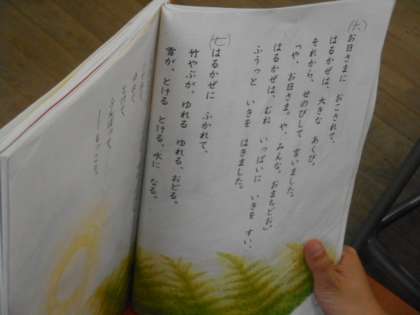 (六)
お日さまに おこされて、
はるかぜは、大きな あくび。
それから、せのびして 言いました。
「や、お日さま。や、みんな。おまちどお。」
はるかぜは、むね いっぱいに いきを すい、
ふうっと いきを はきました。
(七)
はるかぜに ふかれて、
竹やぶが、ゆれる ゆれる、おどる。
雪が、とける とける、水に なる。